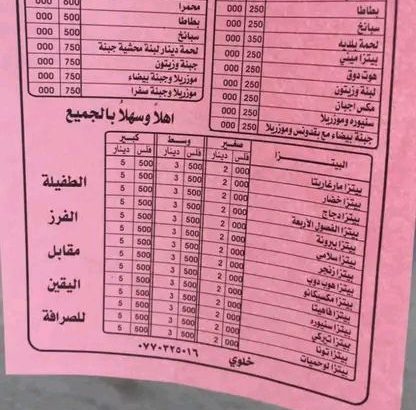 بطاطا 250 000
سبانخ 250 000
لحمة بلديه 350 000
بيتزا ميني 250 000
هوت دوق 250 000
لبنة وزيتون 250 000
مكس اجبان 250 000
سنيوره وموزريلا 250 000
جبنة بيضاء مع بقدونس وموزريلا 250 000
محمرا 500 000
بطاطا 500 000
سبانخ 500 000
لحمة دينار لبنة محشية جبنة 750 000
جبنة وزيتون 750 000
موزريلا وجبنة بيضاء 750 000
موزريلا وجبنة صفرا 750 000
اهلاً وسهلاً بالجميع
البيتزا صغير وسط كبير
فلس دينار فلس دينار فلس دينار
بيتزا مارغاريتا 000 2 500 3 500 5
بيتزا خضار 000 2 500 3 500 5
بيتزا دجاج 000 2 500 3 500 5
بيتزا الفصول الأربعة 000 2 500 3 500 5
بيتزا بيرونة 000 2 500 3 500 5
بيتزا سلامي 000 2 500 3 500 5
بيتزا رنجر 000 2 500 3 500 5
بيتزا هوت دوب 000 2 500 3 500 5
بيتزا مكسيكانو 000 2 500 3 500 5
بيتزا فاهيتا 000 2 500 3 500 5
بيتزا سنيوره 000 2 500 3 500 5
بيتزا تيركي 000 2 500 3 500 5
بيتزا تونا 000 2 500 3 500 5
بيتزا لوحميات 000 2 500 3 500 5
الطفيلة
الفرز
مقابل
اليقين
للصرافة
خلوي ٠٧٧٠٣٢٥٠١٦